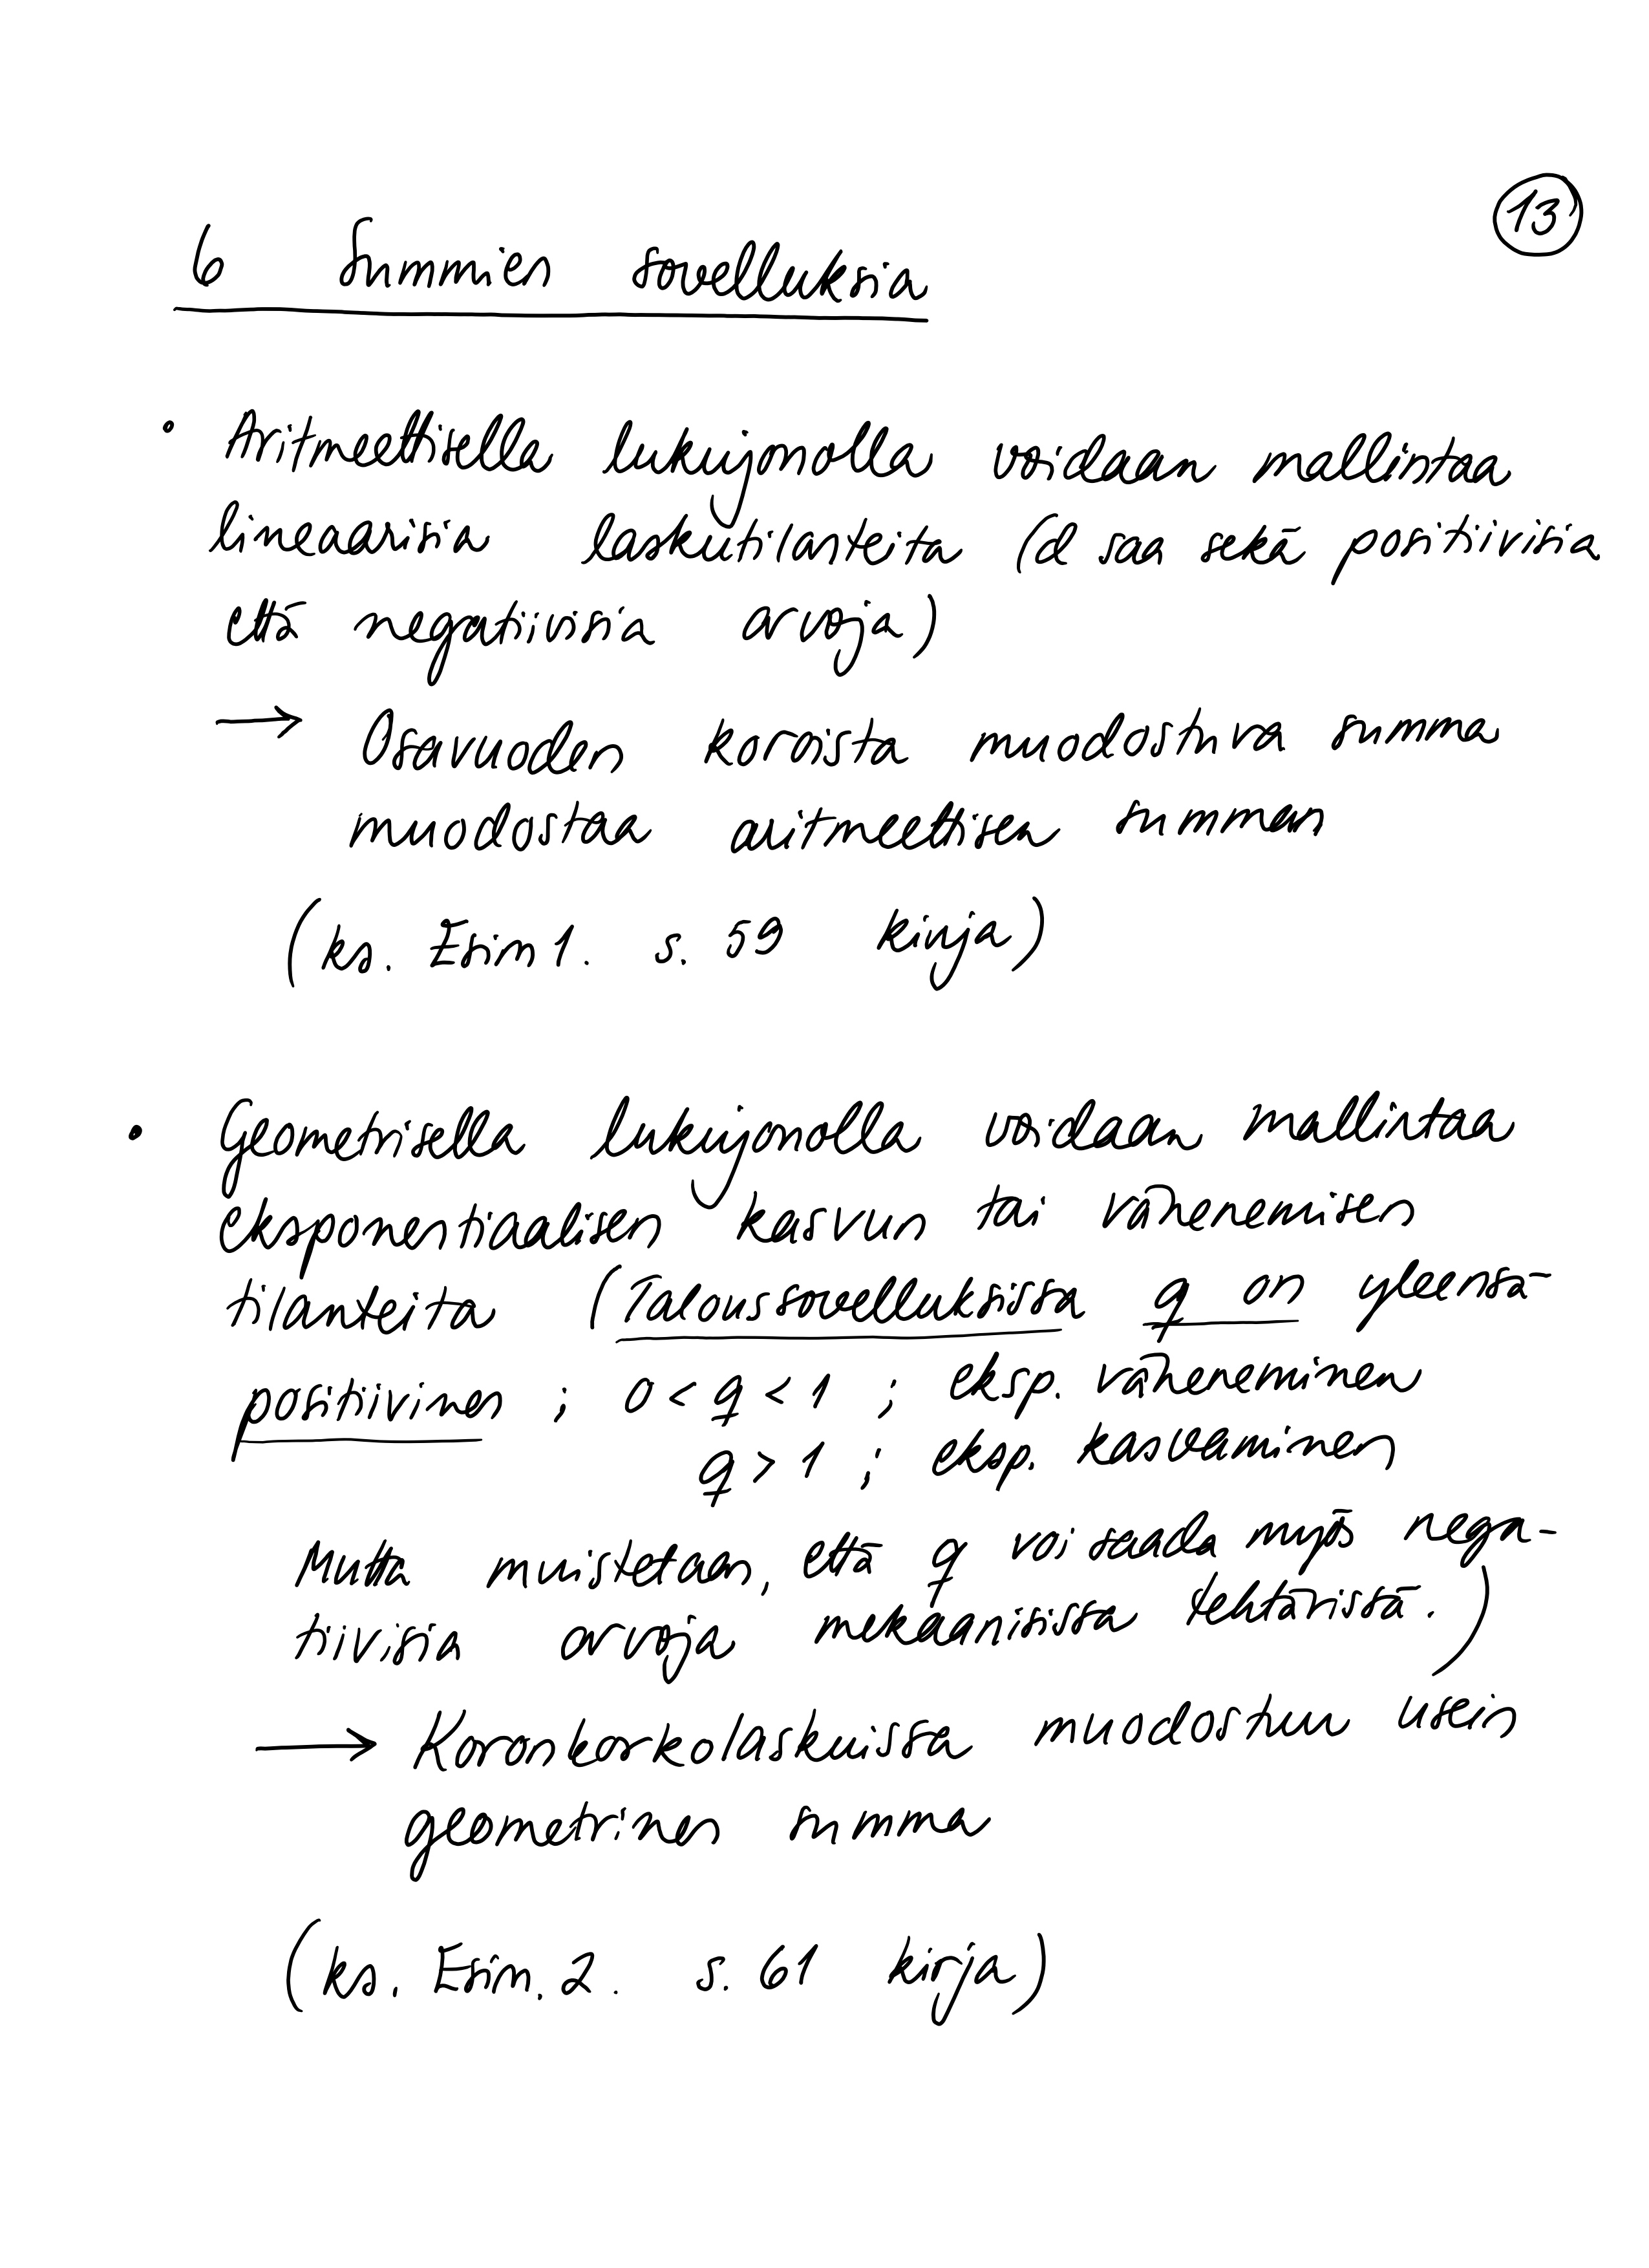 13
6 Summien sovelluksia
• Aritmeettisella lukujonolla voidaan mallintaa
lineaarisia laskutilanteita (d saa sekä positiivisia
että negatiivisia arvoja)
→ Osavuoden koroista muodostuva summa
muodostaa aritmeettisen summan
(ks. Esim 1. s. 59 kirja)
• Geometrisella lukujonolla voidaan mallintaa
eksponentiaalisen kasvun tai vähenemisen
tilanteita (Taloussovelluksissa q on yleensä
positiivinen ; 0 < q < 1 ; eksp. väheneminen
q > 1 ; eksp. kasvaminen
Mutta muistetaan, että q voi saada myös nega-
tiivisia arvoja mekaanisissa tehtävissä.)
→ Koronkorkolaskuissa muodostuu usein
geometrinen summa
(ks. Esim. 2. s. 61 kirja)